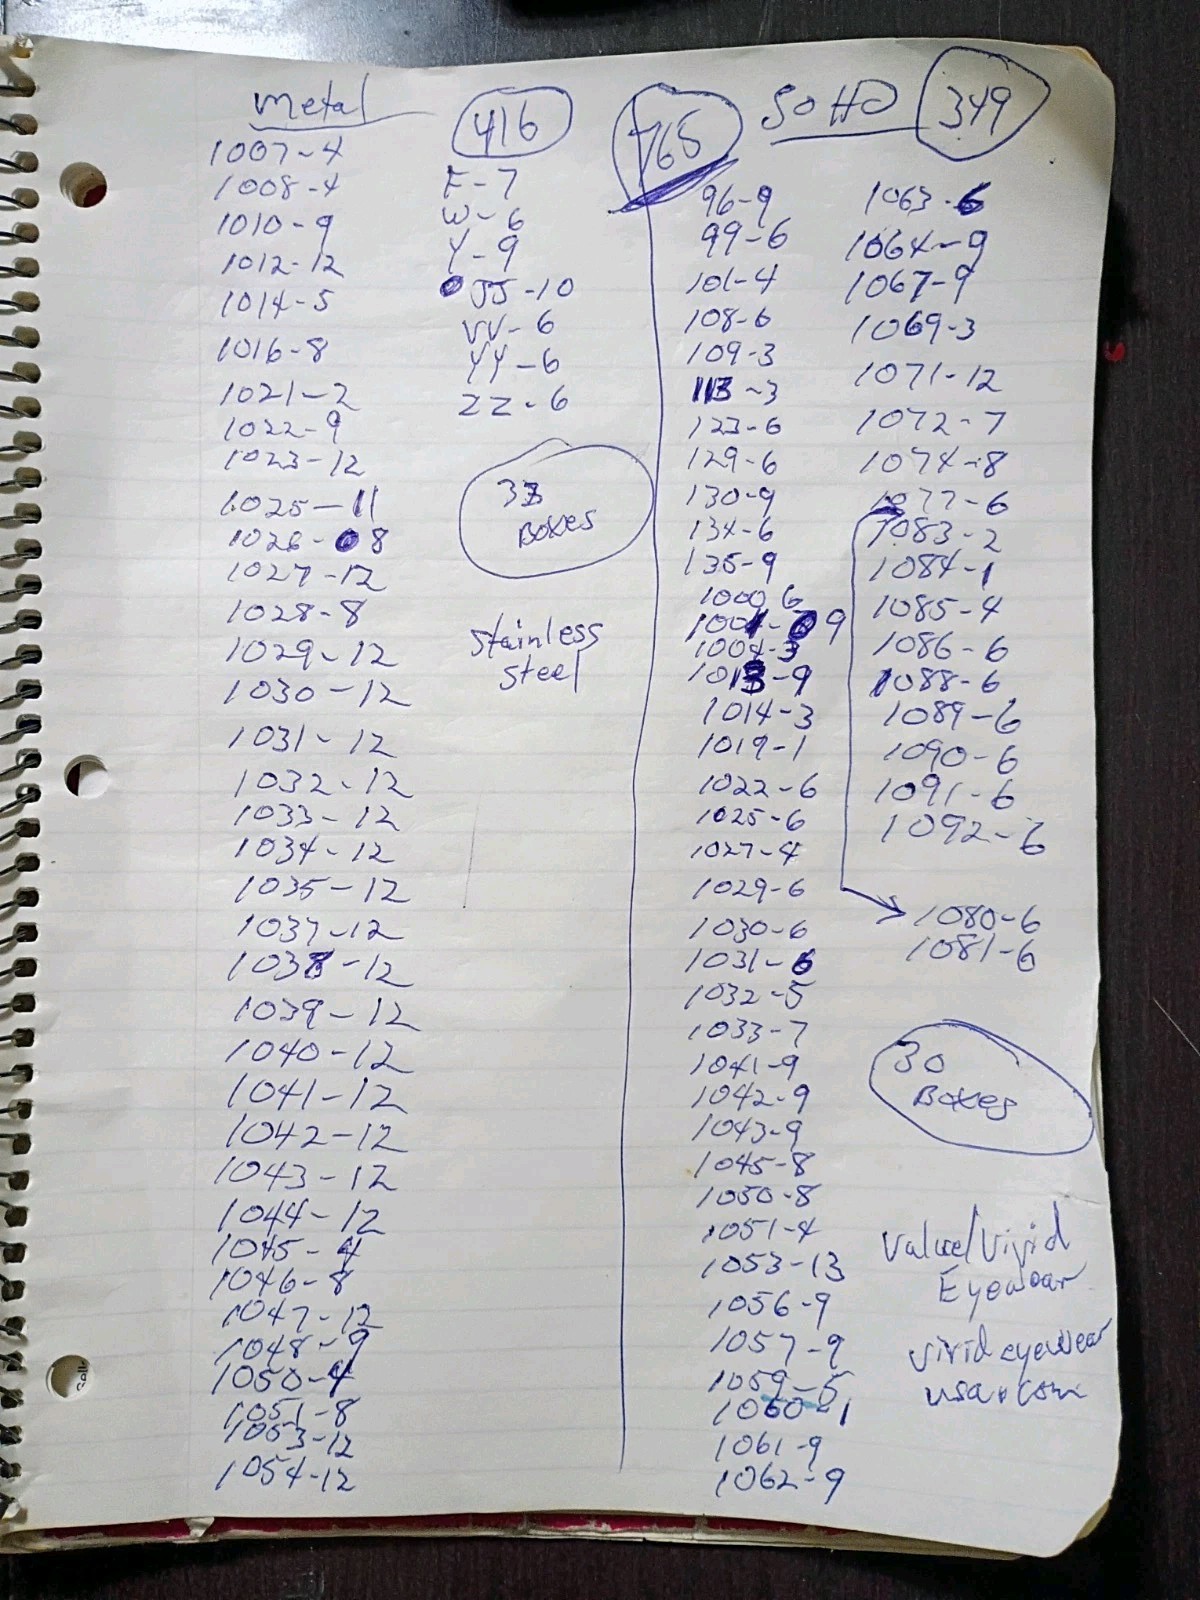 Metal
416
1007-4
1008-4
1010-9
1012-12
1014-5
1016-8
1021-2
1022-9
1023-12
1025-11
1026-08
1027-12
1028-8
1029-12
1030-12
1031-12
1032-12
1033-12
1034-12
1035-12
1037-12
1038-12
1039-12
1040-12
1041-12
1042-12
1043-12
1044-12
1045-4
1046-8
1047-12
1048-9
1050-4
1051-8
1053-12
1054-12
F-7
W-6
Y-9
JJ-10
VV-6
YY-6
ZZ-6
33
Boxes
Stainless
Steel
765
SOHO
349
96-9
99-6
101-4
108-6
109-3
113-3
123-6
129-6
130-9
134-6
135-9
1000 6
1001-9
1004-3
1013-9
1014-3
1019-1
1022-6
1025-6
1027-4
1029-6
1030-6
1031-6
1032-5
1033-7
1041-9
1042-9
1043-9
1045-8
1050-8
1051-4
1053-13
1056-9
1057-9
1059-5
1060-1
1061-9
1062-9
1063-6
1064-9
1067-9
1069-3
1071-12
1072-7
1074-8
1077-6
1083-2
1084-1
1085-4
1086-6
1088-6
1089-6
1090-6
1091-6
1092-6
1080-6
1081-6
30
Boxes
Value/Vivid
Eyewear
vivid eyewear
usa.com